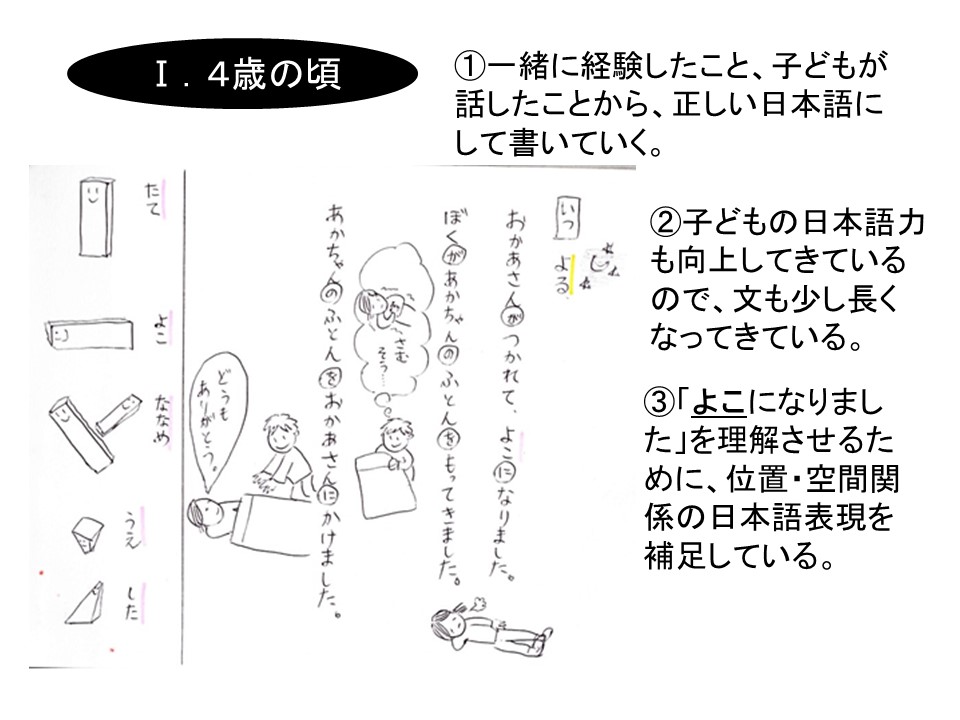 Ⅰ．４歳の頃
①一緒に経験したこと、子どもが
話したことから、正しい日本語に
して書いていく。
②子どもの日本語力
も向上してきている
ので、文も少し長く
なってきている。
③「よこになりまし
た」を理解させるた
めに、位置・空間関
係の日本語表現を
補足している。
いつ
よる
おかあさんがつかれて、よこになりました。
ぼくがあかちゃんのふとんをもってきました。
さむ
そう…
あかちゃんのふとんをおかあさんにかけました。
どうも
ありがとう。
たて
よこ
ななめ
うえ
した